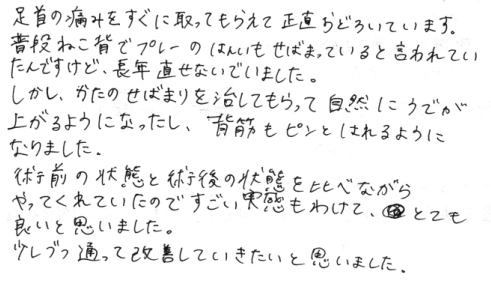 足首の痛みをすぐに取ってもらえて正直おどろいています。
普段ねこ背でプレーのはんいもせばまっていると言われてい
たんですけど、長年直せないでいました。
しかし、かたのせばまりを治してもらって自然にうでが
上がるようになったし、背筋もピンとはれるように
なりました。
術前の状態と術後の状態を比べながら
やってくれていたのですごい実感もわけて、とても
良いと思いました。
少しづつ通って改善していきたいと思いました。